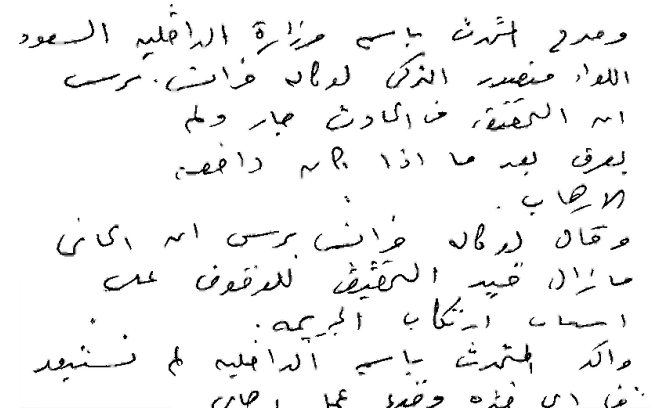 وصرح المتحدث باسم وزارة الداخلية السعود
اللواء منصور التركي لوكالة فرانس برس
ان التحقيق في الحادث جار ولم
يعرف بعد ما اذا كان دافعه
الارهاب.
وقال لوكالة فرانس برس ان الجاني
مازال قيد التحقيق للوقوف على
اسباب ارتكاب الجريمة.
واكد المتحدث باسم الداخلية لم نستبعد
في اي وقوع عمل